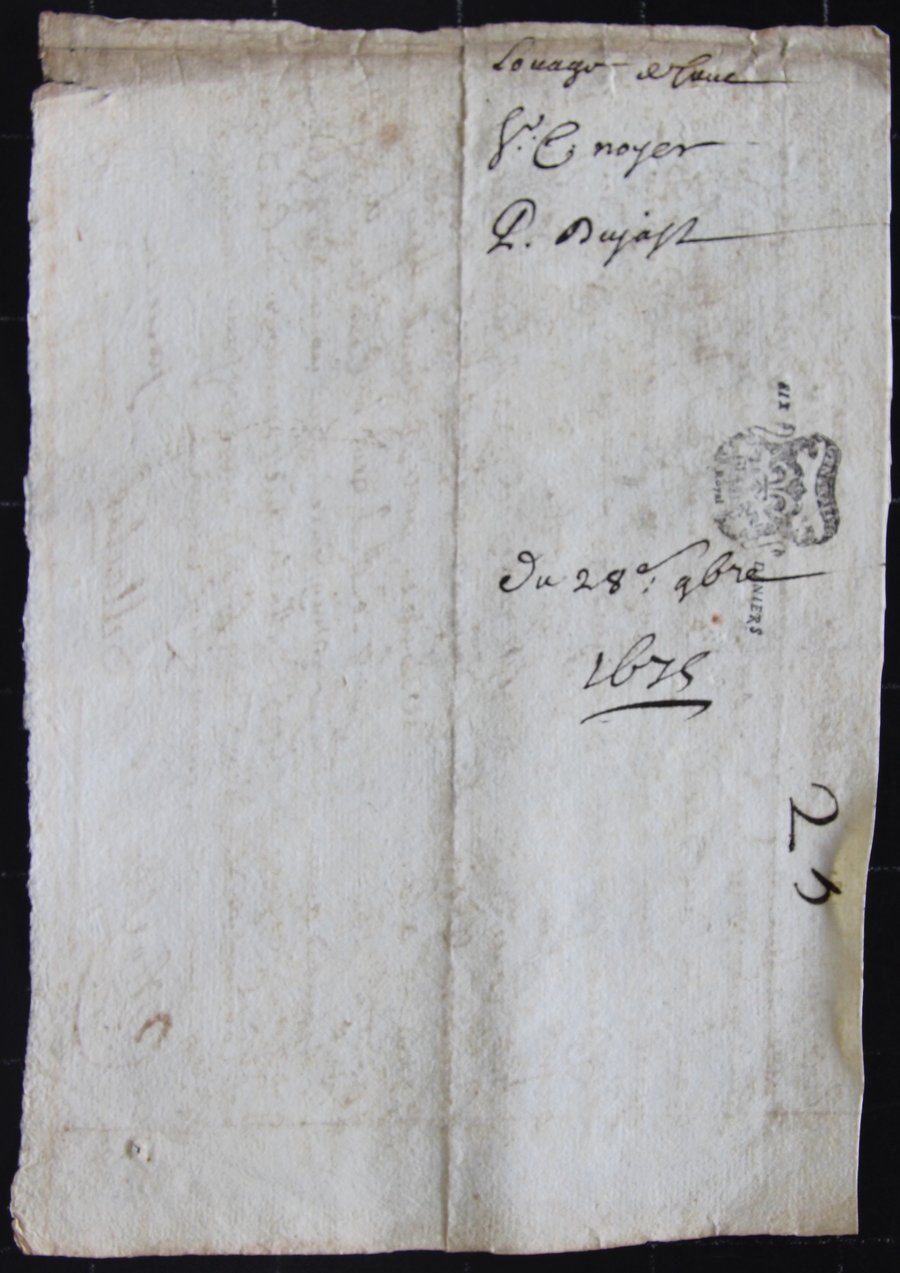 Louage de Caue
Sr. C. noyer
P. Dujast
SIX DENIERS
Du 28e: 9bre
1675
2